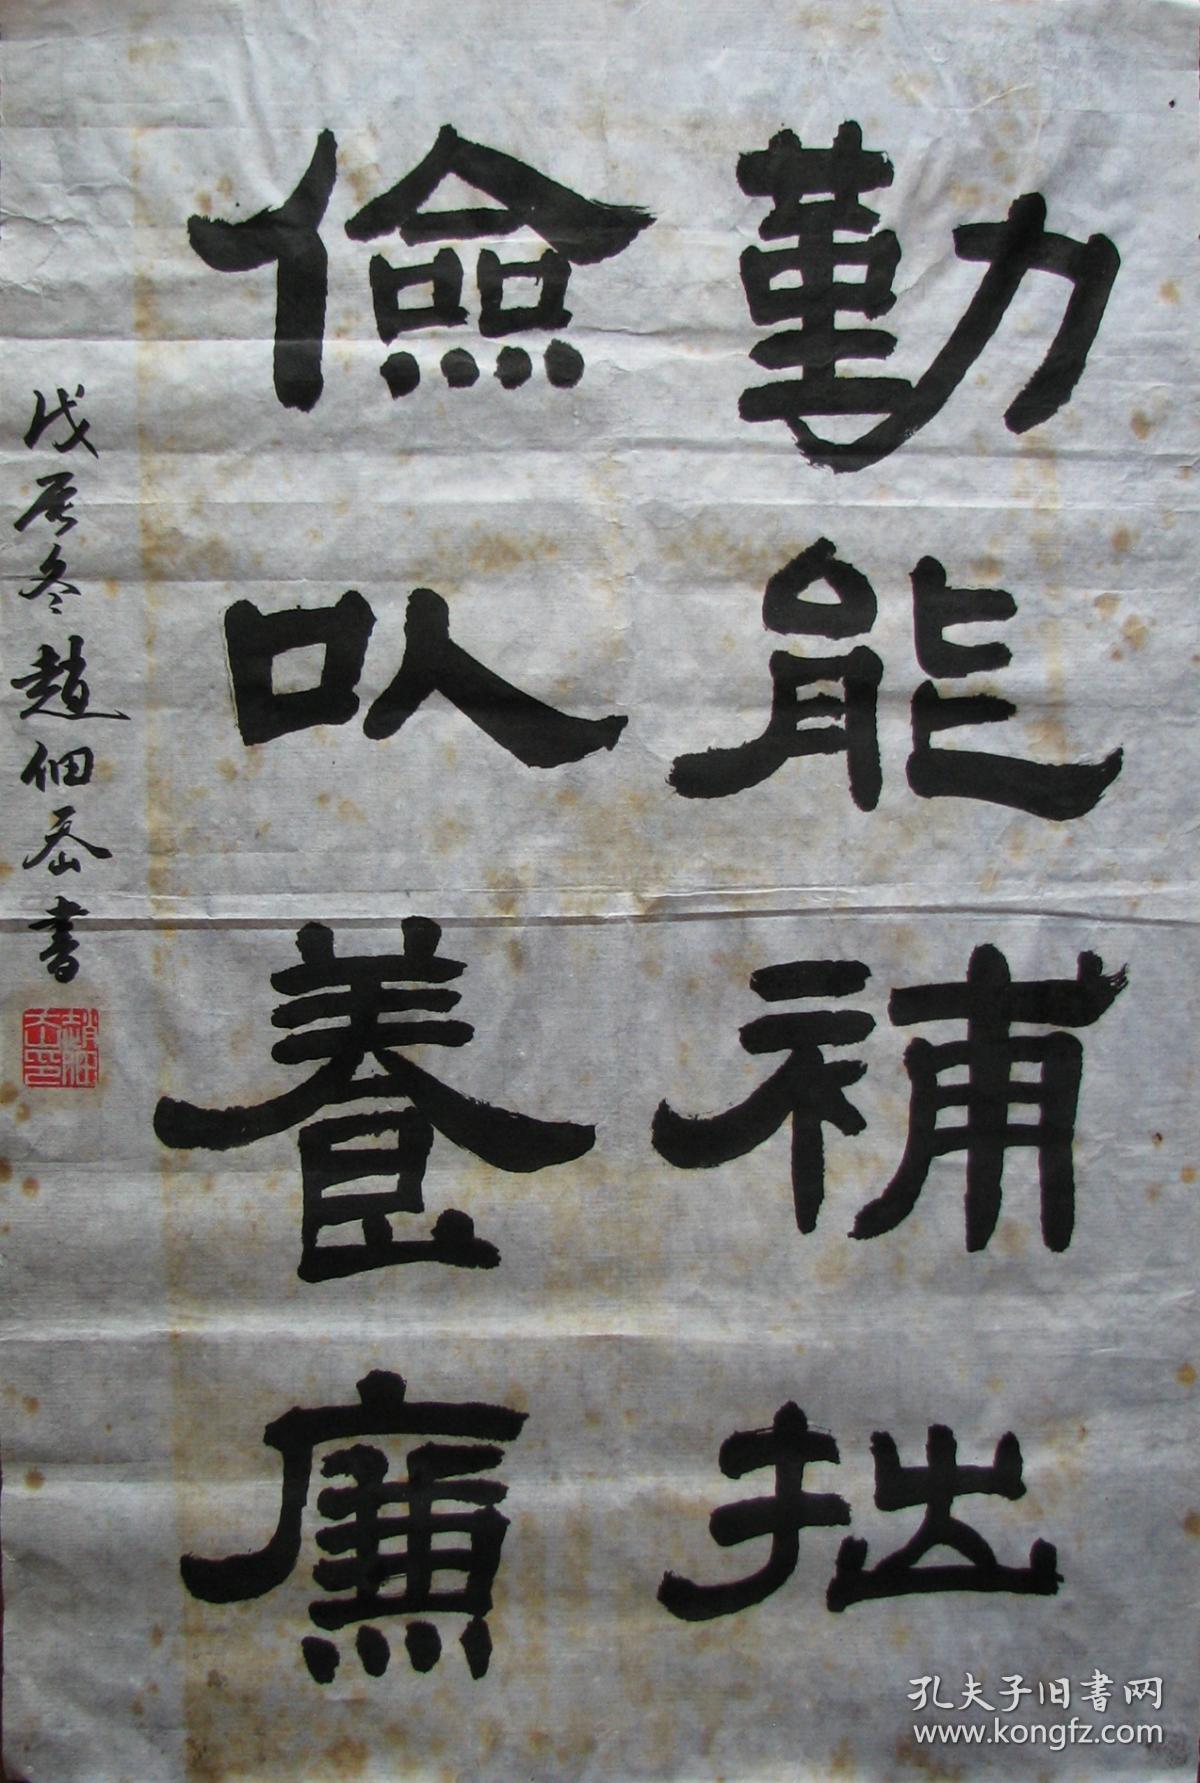 勤能補拙
儉以養廉
戊辰冬趙佃岙書
孔夫子旧書网
www.kongfz.com